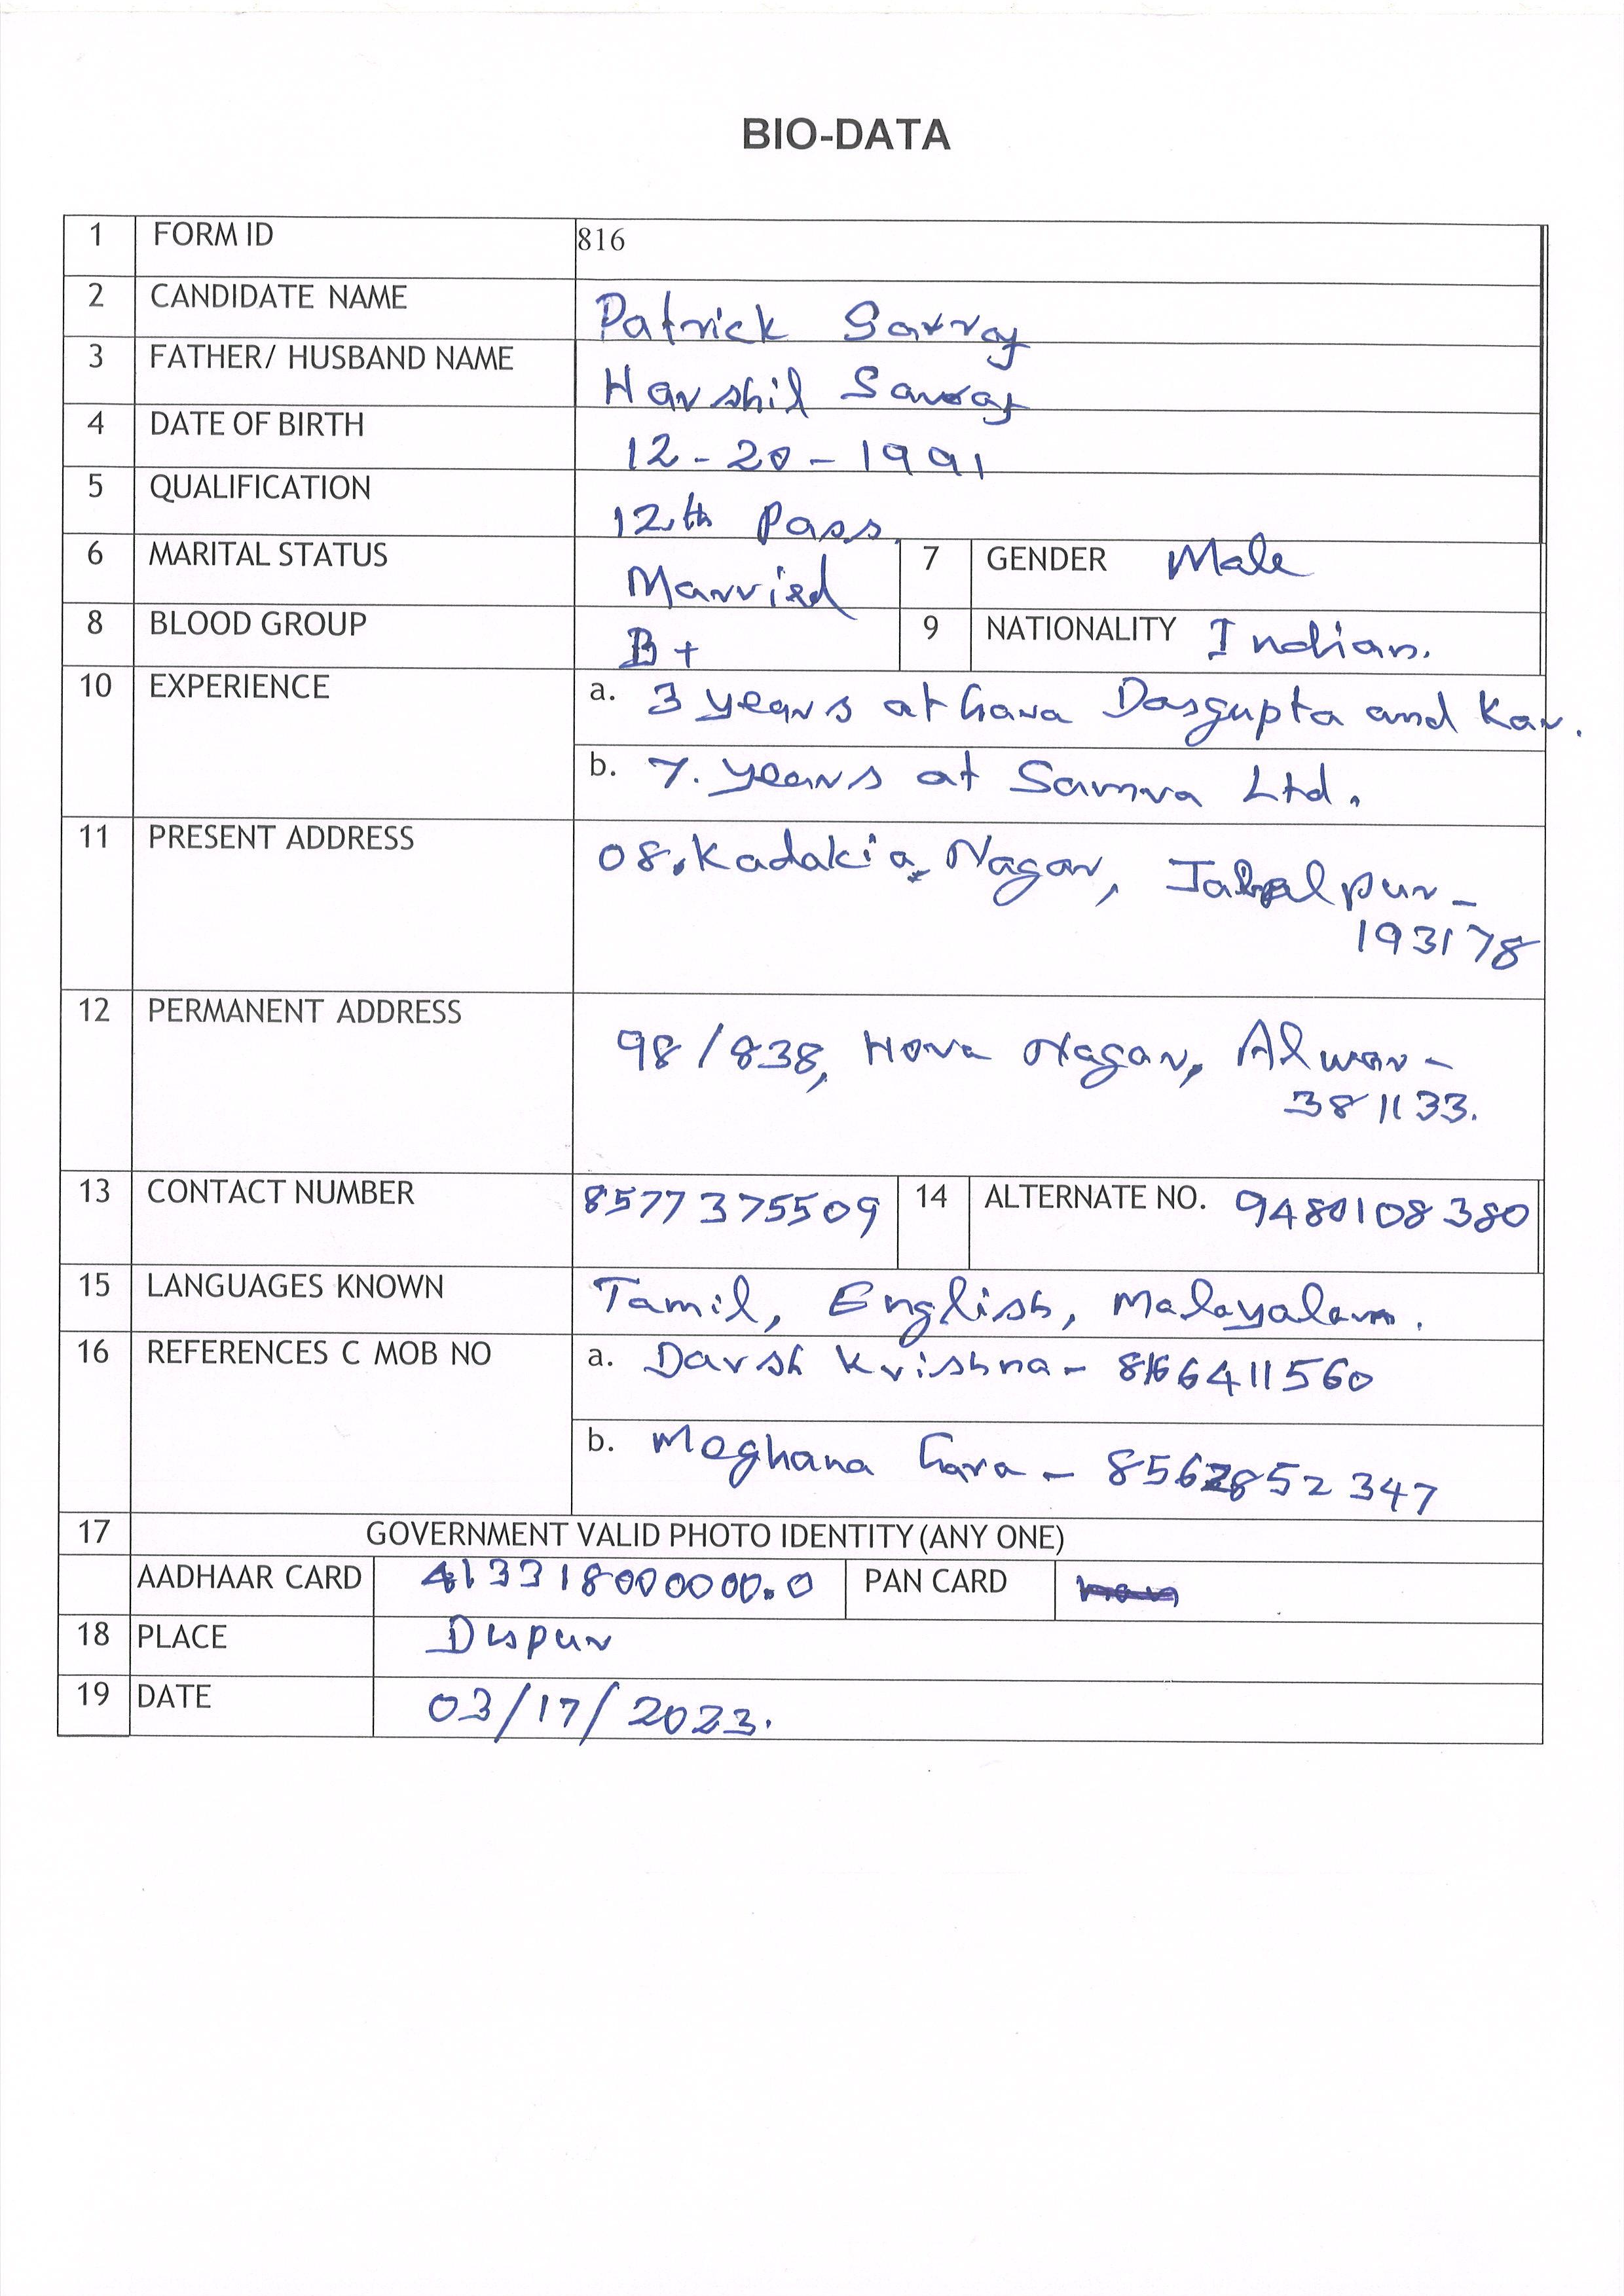 BIO-DATA
1 FORM ID 816
2 CANDIDATE NAME Patrick
3 FATHER/ HUSBAND NAME Harshil
4 DATE OF BIRTH 12-20-1991
5 QUALIFICATION 12th Pass
6 MARITAL STATUS Married 7 GENDER Male
8 BLOOD GROUP B+ 9 NATIONALITY Indian.
10 EXPERIENCE a. 3 years at Gara Dasgupta and Kar.
b. 7. years at Samra Ltd.
11 PRESENT ADDRESS 08, Kadakia Nagar, Jabalpur -
193178
12 PERMANENT ADDRESS 98/838, Nagar, Alwar -
381133.
13 CONTACT NUMBER 8577375509 14 ALTERNATE NO. 9480108380
15 LANGUAGES KNOWN Tamil, English, Malayalam.
16 REFERENCES C MOB NO a. Darsh Krishna -
b. Meghana Gara -
17 GOVERNMENT VALID PHOTO IDENTITY (ANY ONE)
AADHAAR CARD 413318000000.0 PAN CARD
18 PLACE Dispur
19 DATE 03/17/2023.